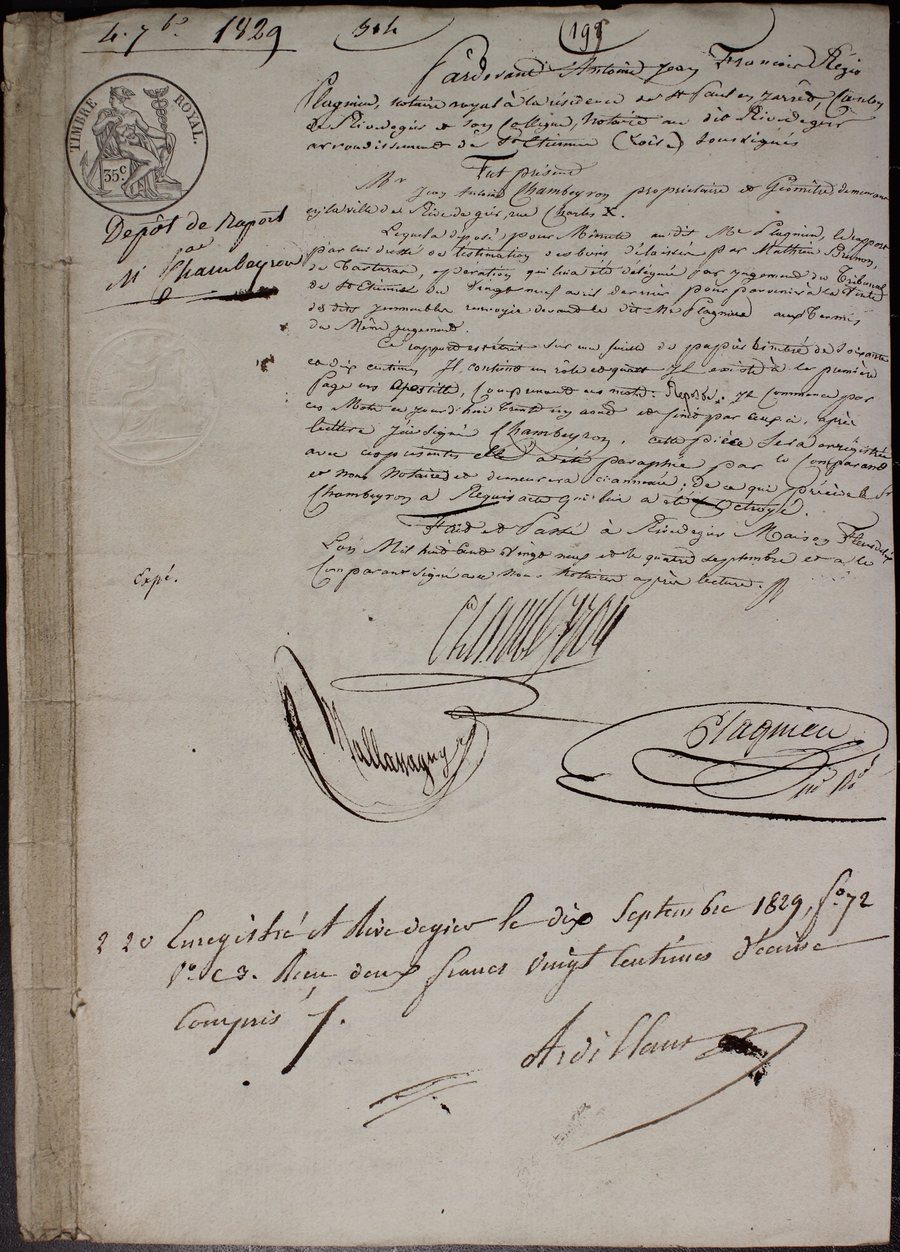 4. 7bre 1829 304 199
Pardevant Antoine Jean François Régis
Plagnieu, notaire royal à la résidence de St Paul en Jarrêt, Canton
de Rivedegier et son Collègue, notaire au dit Rivedegier
arrondissement de St Etienne (Loire) soussignés
Fut présent
TIMBRE ROYAL.
35c.
Mr Jean Antoine Chambeyron propriétaire et Géomètre demeurant
en la ville de Rive de gier, rue Charles X.
Dépôt de Raport
par
Mr Chambeyron
Lequel a déposé, pour Minute au dit Me Plagnieu, le rapport
par lui dressé de l'estimation des biens délaissés par Mathieu Brunon,
de Tartaras, opération qui lui a été déléguée par jugement du Tribunal
de St Etienne du vingt neuf avril dernier pour parvenir à la Vente
des dits immeubles renvoyée devant le dit Me Plagnieu aux termes
du Même jugement.
Ce rapport est écrit sur une feuille de papier timbré de soixante
et dix centimes, Il contient un rôle et quart Il existe à la première
page une Apostille, Comprenant ces mots: Il Commence par
ces Mots ce jourd'hui trente un août et finit par ceux ci, après
lecture j'ai signé Chambeyron, cette pièce sera enregistrée
avec ces présentes elle a été paraphée par le Comparant
et nous Notaires et demeurera ci annexée; De ce qui précède le Sr
Chambeyron a Requis acte qui lui a été Octroyé.
Fait et Passé à Rivedegier Maison Fleurdelix
L'an Mil huit Cent Vingt neuf et le quatre septembre et a le
Comparant signé avec Nous Notaires après lecture.
Expé.
Chambeyron
Plagnieu
nre Ral
2 20 Enregistré à Rivedegier le dix Septembre 1829, fo 72
Vo C 3. Reçu deux francs vingt Centimes décime
Compris
Ardillon